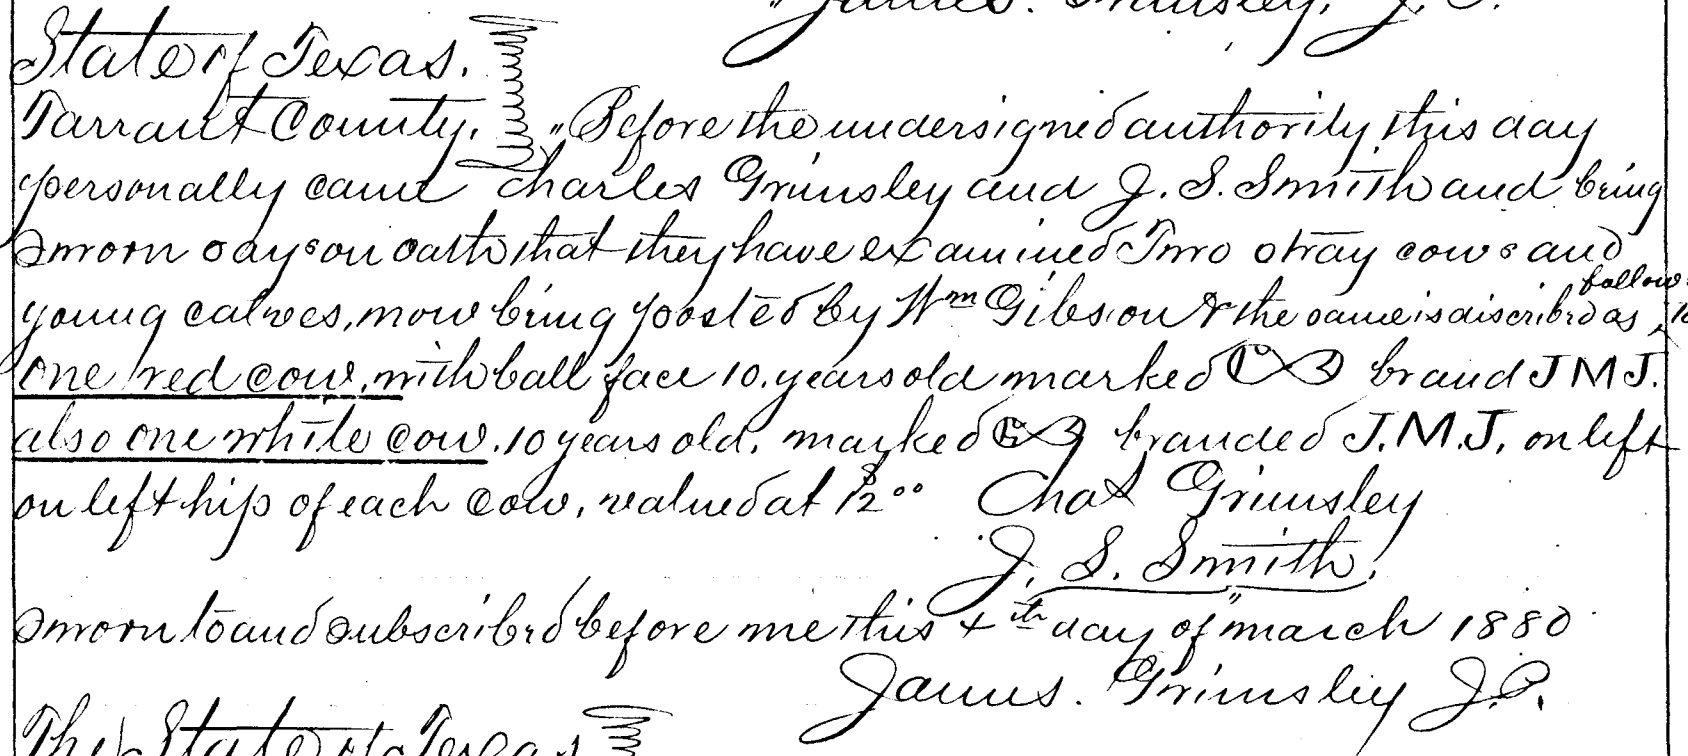 "James. Grimsley, J.P.
State of Texas.
Tarrant County. "Before the undersigned authority, this day
personally came Charles Grimsley and J. S. Smith and being
sworn says on oath that they have examined Two stray cows and
young calves, now being posted by Wm Gibson & the same is discribed as
follows
one red cow, with ball face 10. years old marked brand J M J.
also one white cow. 10 years old, marked branded J.M.J. on left
on left hip of each cow, valued at $12°° Chas Grimsley
J. S. Smith.
Sworn to and subscribed before me this 4th day of "march 1880
James. Grimsley J.P.
The State of Texas